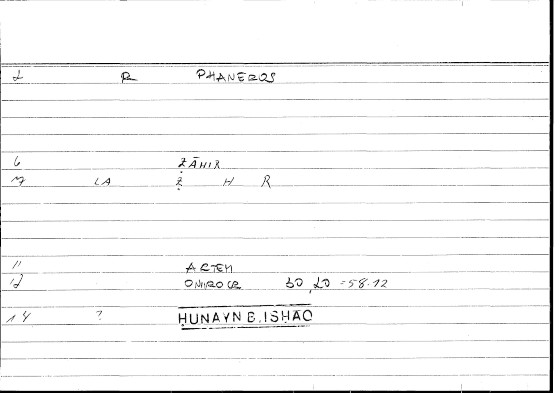 2 R PHANEROS
6 ẒĀHIR
7 LA Ẓ H R
11 ARTEM
12 ONIROCR 30,20 = 58.12
14 ? ḤUNAYN B. ISḤAQ